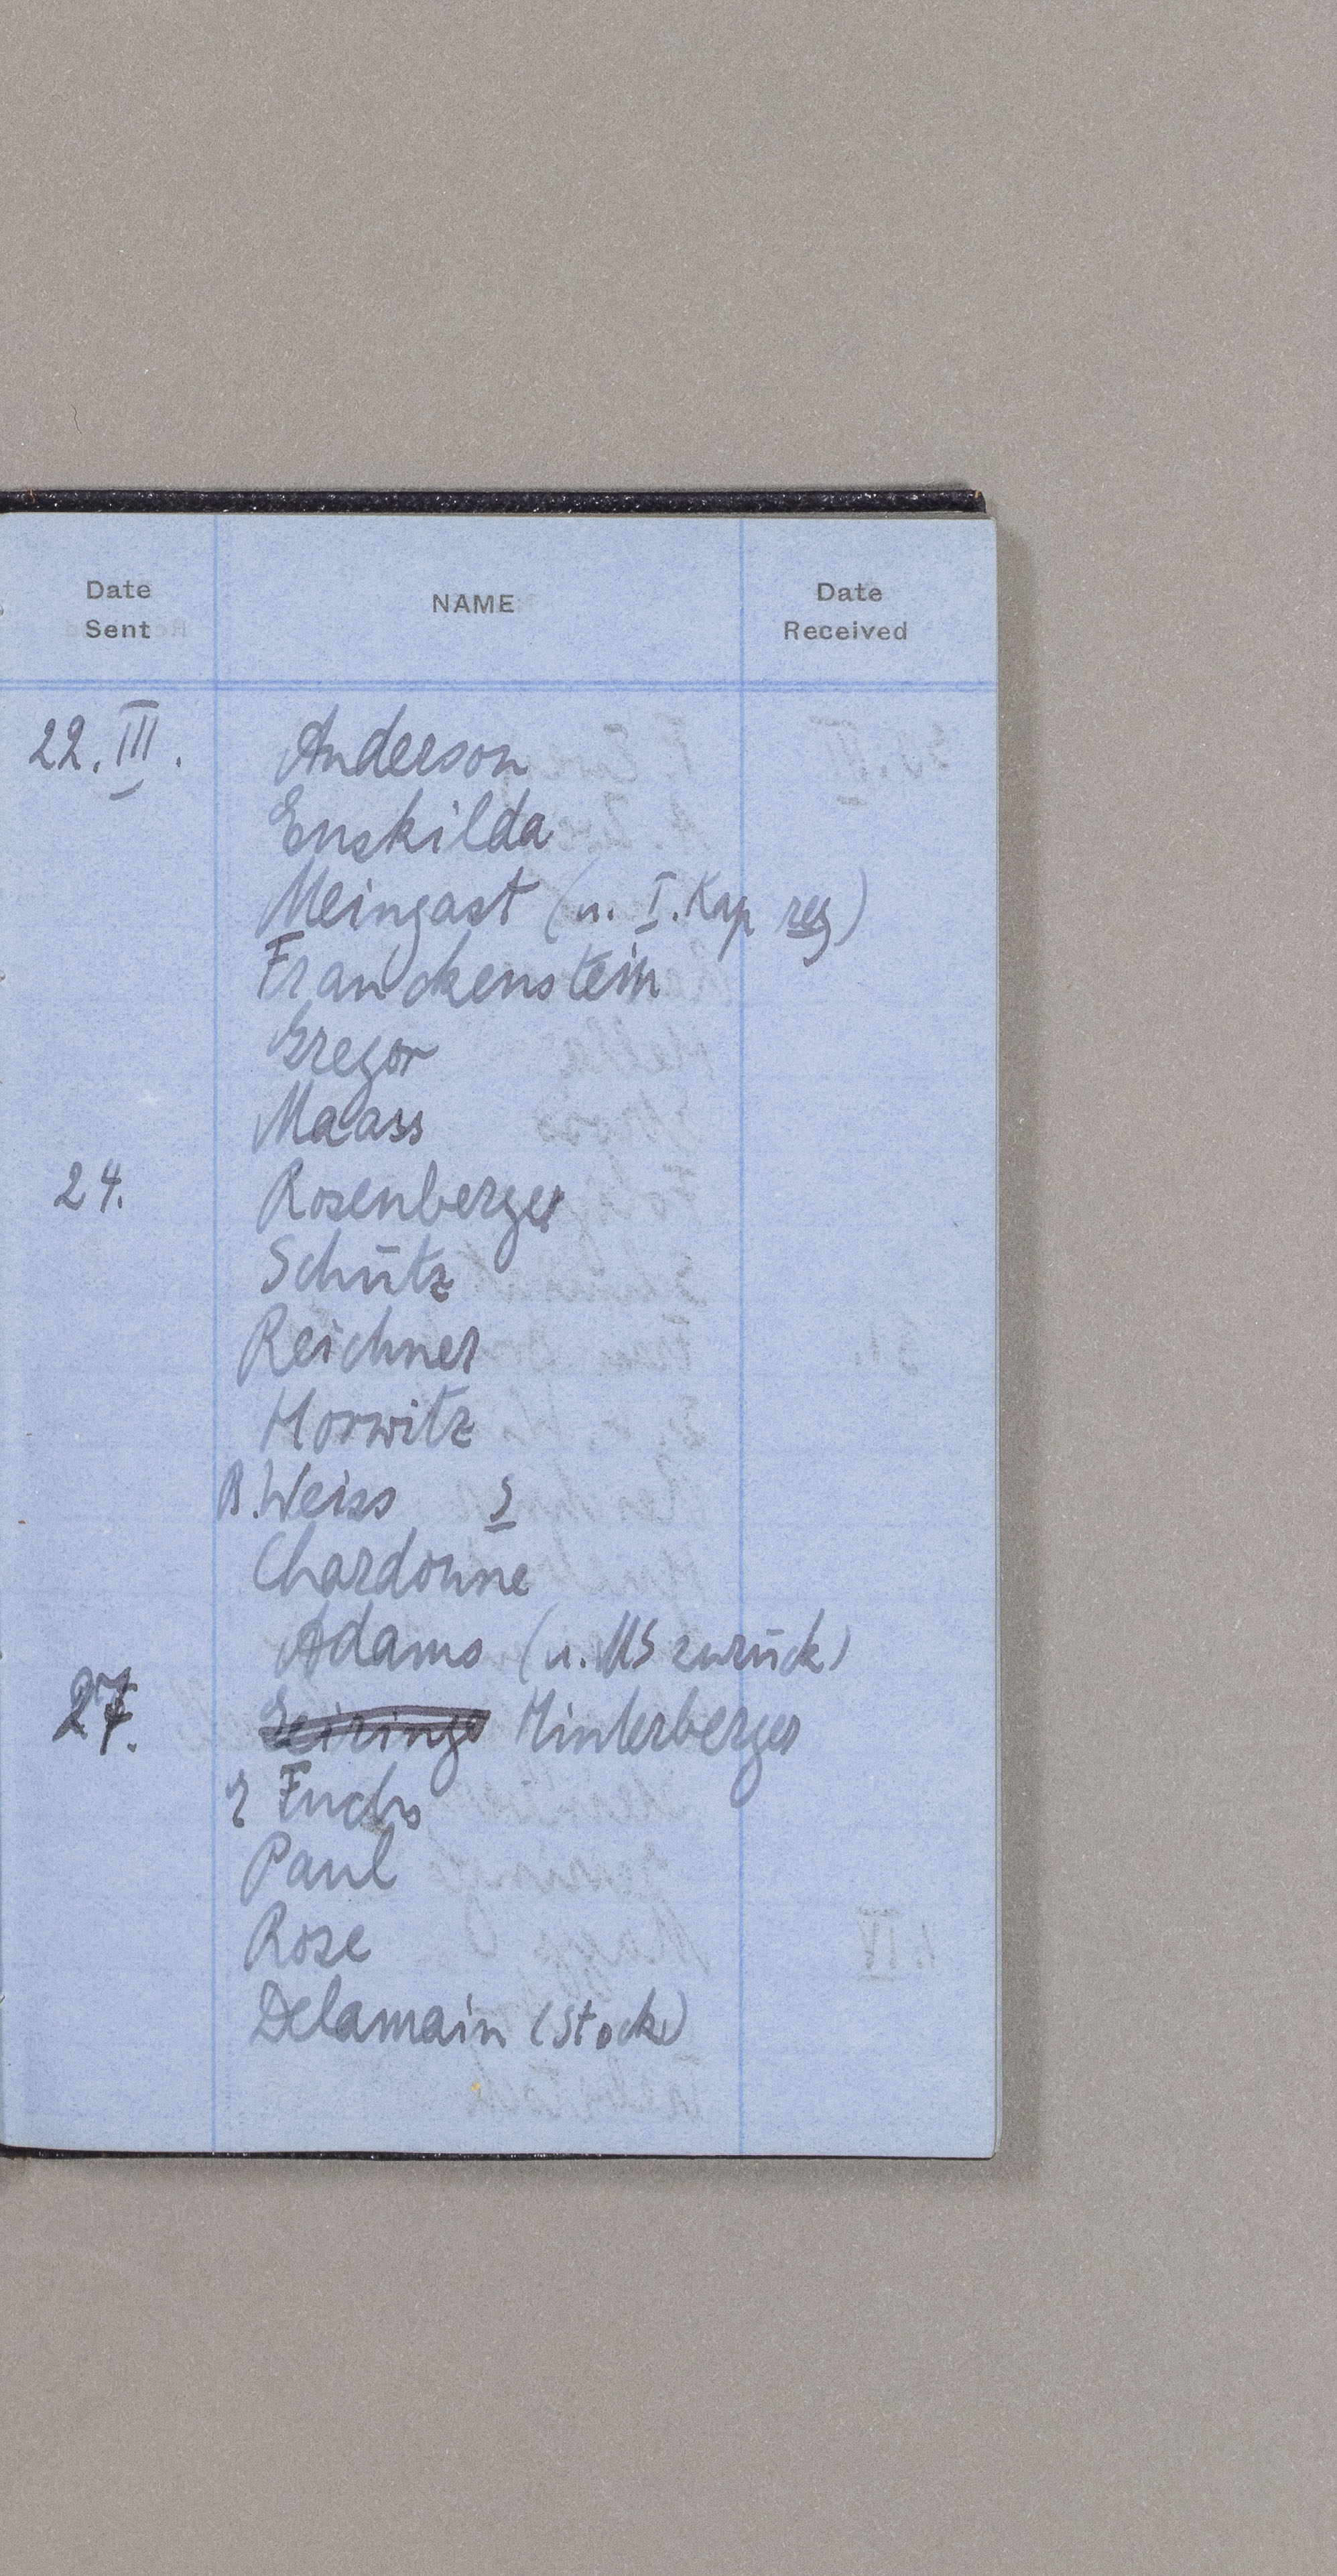 Date Sent NAME Date Received
22. III. Anderson
Enskilda
Meingast (u. I. Kap reg)
Franckenstein
Gregor
Maass
24. Rosenberger
Schütz
Reichner
Horwitz
B. Weiss S
Chardonne
Adams (u. MS zurück)
27. Hinterberger
Fuchs
Paul
Rose
Delamain (Stock)